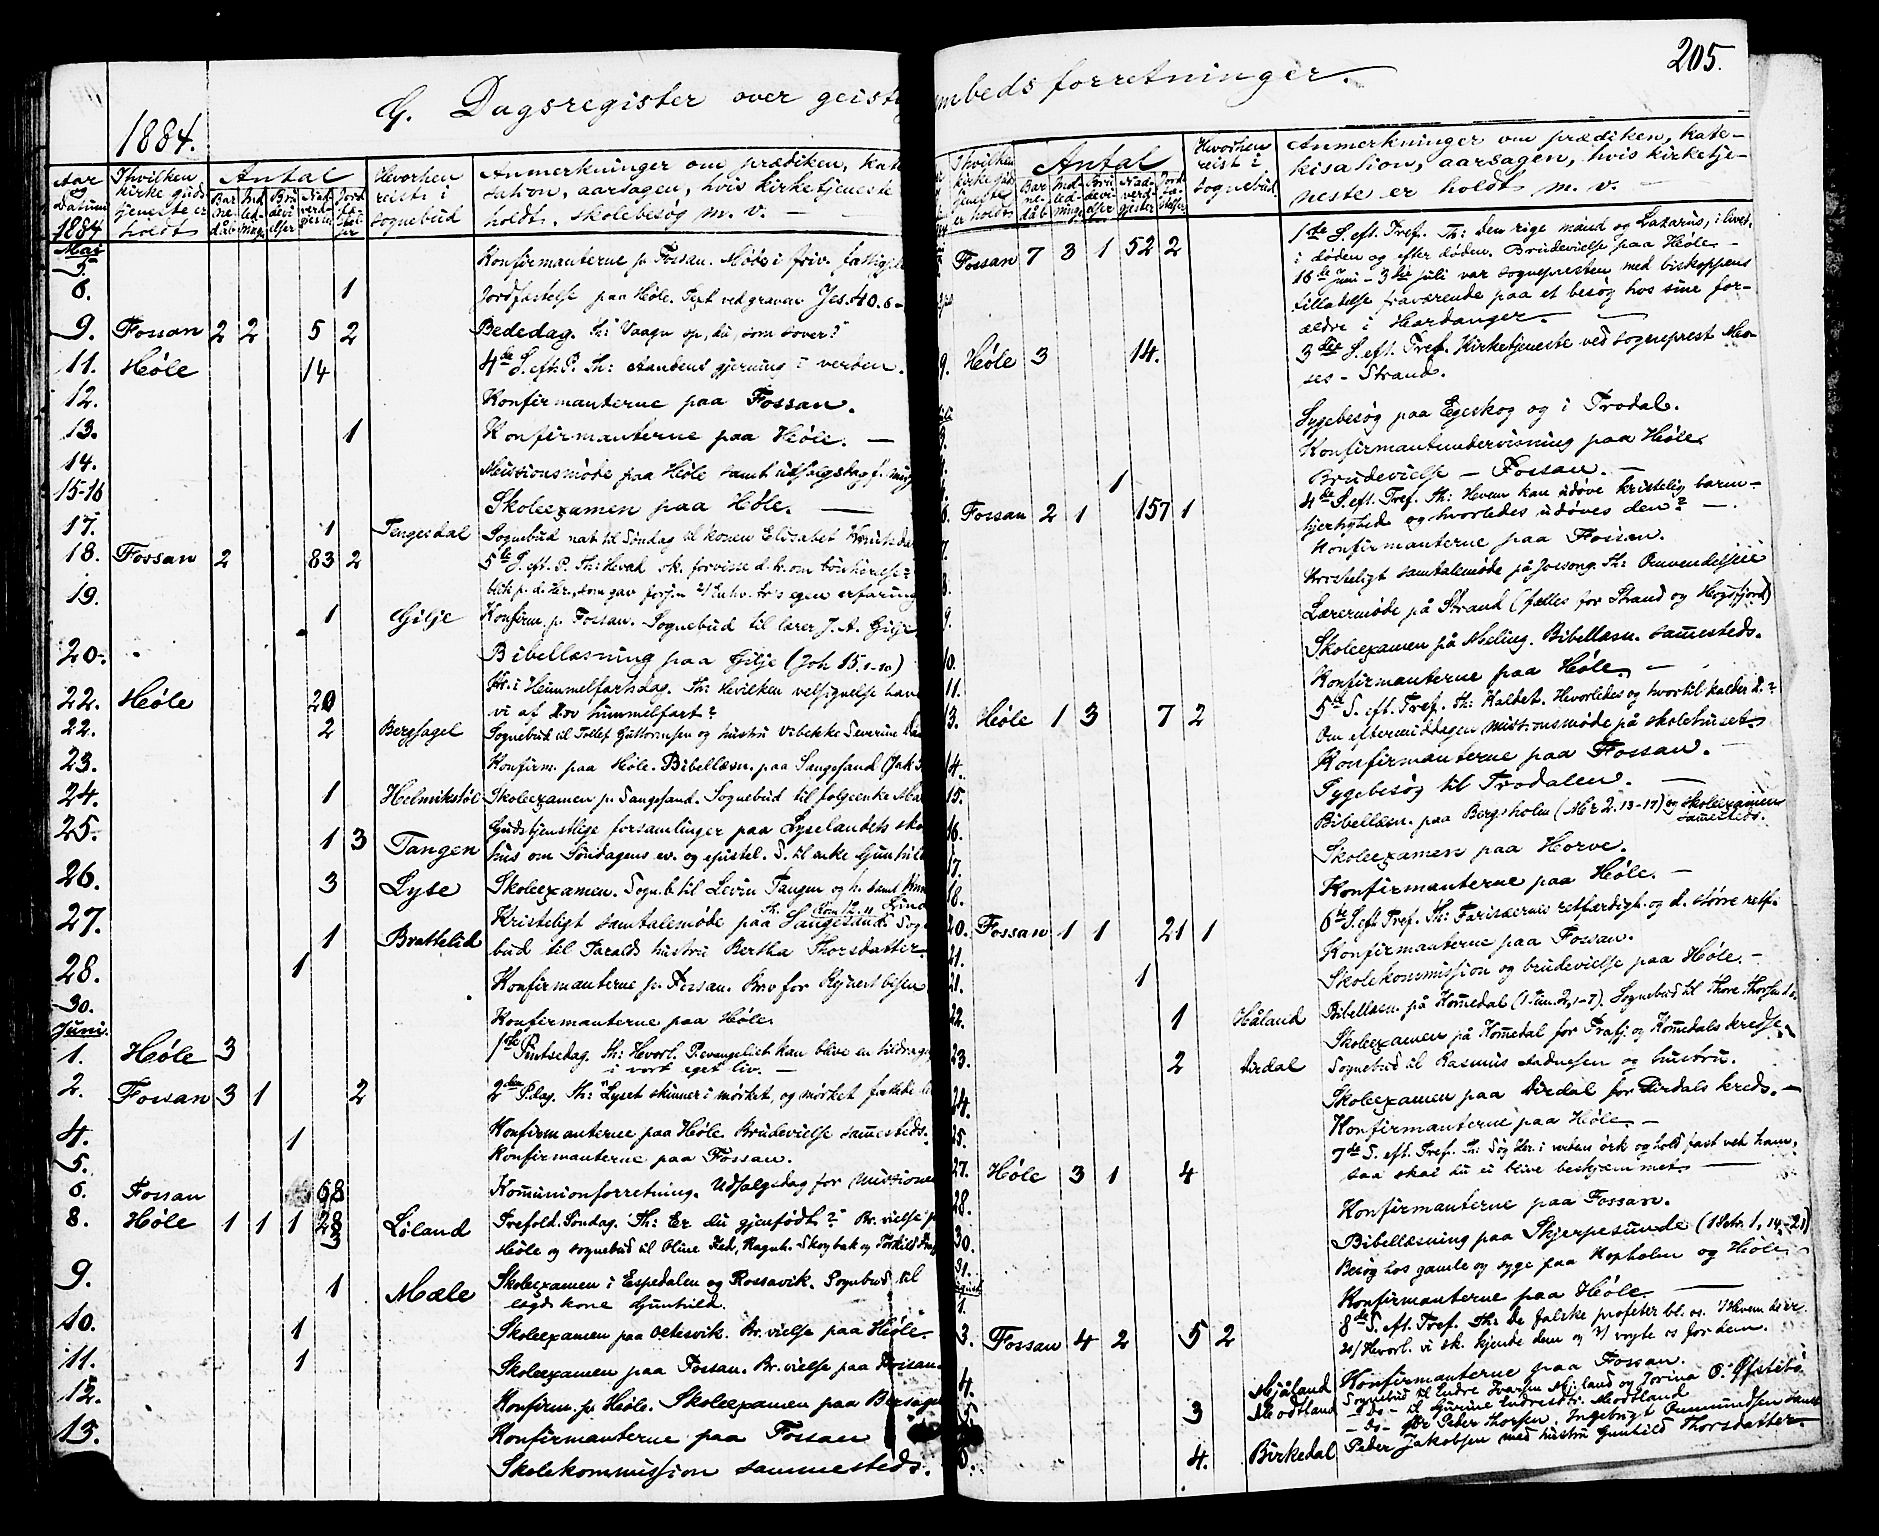 205.
G. Dagsregister over geist
1884.
Aar og Datum 1884
I hvilken kirke guds tjeneste er holdt
Antal
Bar ne daab
Ind led ning
Bru devi elser
Nad verd gjester
Jord fæ stel ser
Hvorhen reist i sognebud
Anmerkninger om prædiken, kate
sation, aarsagen, hvis kirketjeneste
holdt, skolebesøg m. v. —
Mai
5. Konfirmanterne p. Fossan. Møde i
6. 1 Jordfæstelse paa Høle. Text ved graven Jes. 40. 6-
9. Fossan 2 2 5 2 Bededag. Th: Vaagn op, du, som sover!
11. Høle 14 4de S. eft. P. Th: Aandens gjerning i verden.
12. Konfirmanterne paa Fossan.
13. 1 Konfirmanterne paa Høle. —
14. Missionsmøde paa Høle samt udsalgsdag f.
15-16 Skoleexamen paa Høle. —
17. 1 Tengesdal Sognebud nat til Søndag til konen Elisabet
18. Fossan 2 83 2 5te S. eft. P. Th: Hvad sk. forvisse d. k. om bønhørelse?
egen erfaring
19. 1 Gilje Konfirm. p. Fossan. Sognebud til lærer J. A. Gilje
20. Bibellæsning paa Gilje (Joh 15, 1-10)
22. Høle 20 Kr. i Himmelfartsdag. Th: Hvilken velsignelse have
vi af himmelfart?
22. 2 Bergsagel Sognebud til Tollef Guttormsen og hustru Vibekke Severine
23. Konfirm. paa Høle. Bibellæsn. paa Sangesand (Jak
24. 1 Helmikstøl Skoleexamen p. Sangesand. Sognebud til
25. 1 3 Tangen Gudstjenstlige forsamlinger paa Lyselandets sko
hus om Søndagens ev. og epistel. S. til enke Gunhild
26. 3 Lyse Skoleexamen. Sogneb. til Levin Tangen og h. samt
27. 1 Brattelid Kristeligt samtalemøde paa Sangesand. Sog
bud til Taralds hustru Bertha Thorsdatter
28. 1 Konfirmanterne p. Fossan. Brv for
30. Konfirmanterne paa Høle.
Juni
1. Høle 3 1ste Pintsedag. Th: Hvorl. P. evangeliet kan blive en tildrag
i vort eget liv. —
2. Fossan 3 1 2 2den P.dag. Th: "Lyset skinner i mørket, og mørket
4. 1 Konfirmanterne paa Høle. Brudevielse sammesteds.
5. Konfirmanterne paa Fossan.
6. Fossan 68 Kommunionforretning. Udsalgsdag for Missionen
8. Høle 1 1 1 28 3 Løland Trefold. Søndag. Th: Er du gjenfødt? Br. vielse p
Høle og sognebud til Oline
9. 1 Mæle Skoleexamen i Espedalen og Rossavik. Sognebud til
lægdskone Gunhild.
10. 1 Skoleexamen paa Oltesvik. Br. vielse paa Høle.
11. 1 Skoleexamen paa Fossan. Br. vielse paa Fossan.
12. Konfirm. p. Høle. Skoleexamen paa Bersagel
13. Konfirmanterne paa Fossan
Skolekommission sammesteds.
mbedsforretninger.
I hvilken kirke guds tjeneste er holdt
Antal
Bar ne dåb
Ind led ning
Bru devi elser
Nad verd gjester
Jord fæ stelser
Hvorhen reist i sognebud
Anmerkninger om prædiken, kate-
kisation, aarsagen, hvis kirketje-
neste er holdt m. v. —
Fossan 7 3 1 52 2 1ste S. eft. Tref. Th: Den rige mand og Lazarus, i livet,
i døden og efter døden. Brudevielse paa Høle. —
16de juni - 3die juli var sognepresten med biskoppens
tilladelse fraværende paa et besøg hos sine for-
ældre i Hardanger. —
9. Høle 3 14. 3die S. eft. Tref. Kirketjeneste ved sogneprest
- Strand.
Sygebesøg paa Egeskog og i Trodal.
Konfirmantundervisning paa Høle.
1 Brudevielse — Fossan. —
6. Fossan 2 1 157 1 4de S. eft. Tref. Th: Hvem kan udøve kristelig barm-
hjertighed og hvorledes udøves den? —
7. Konfirmanterne paa Fossan.
8. Kristeligt samtalemøde på Th: Omvendelsen
9. Lærermøde på Strand (fælles for Strand og Høgsfjord)
10. Skoleexamen på Meling. Bibellæsn. sammesteds.
11. Konfirmanterne paa Høle. —
13. Høle 1 3 7 2 5te S. eft. Tref. Th: Kaldet. Hvorledes og hvortil kalder d.?
Om eftermiddagen missionsmøde på skolehuset.
14. Konfirmanterne paa Fossan. —
15. Sygebesøg til Trodalen. —
16. Bibellæsn. paa Bergsholm (Mr 2. 13-17) og skoleexamen
sammesteds.
17. Skoleexamen paa Horve.
18. Konfirmanterne paa Høle. —
20. Fossan 1 1 21 1 6te S. eft. Tref. Th: Farisæernes retfærdigh. og d. større retf.
21. Konfirmanterne paa Fossan.
21. 1 Skolekommission og brudevielse paa Høle. —
22. 1 Håland Bibellæsn. på Komedal (1 Tim. 2, 1-7). Sognebud til Thore
Skoleexamen på Komedal for Frafj og Komedals kredse.
23. 2 Dirdal Sognebud til Rasmus Aadnesen og hustru.
24. Skoleexamen paa Dirdal for Dirdals kreds. —
25. Konfirmanterne paa Høle —
27. Høle 3 1 4 7de S. eft. Tref. Th: Søg Her. i verdens ørk og hold fast ved ham,
saa skal du ei blive beskjæmmet. —
28. Konfirmanterne paa Fossan.
30. Bibellæsning paa Skjerpesunde (1 Petr. 1, 14-21)
31. Besøg hos gamle og syge paa Hopholm og Høle.
August
1. Konfirmanterne paa Høle. —
3. Fossan 4 2 5 2 8de S. eft. Tref. Th: De falske profeter bl. os. 1/ Hvem de er.
2/ Hvorl. vi sk. kjende dem og 3/ vogte os for dem.
4. Konfirmanterne paa Fossan.
Mjåland Sognebud til Endre Ivarsen Mjåland og Jorina O. Øfstebø
3 Modtland - do - til Gurine Endresdtr. Modtland
- do - Peder Thorsen, Ingebrigt Ommundsen samt
4. Birkedal Peder Jakobsen med hustru Gunhild Thorsdatter —